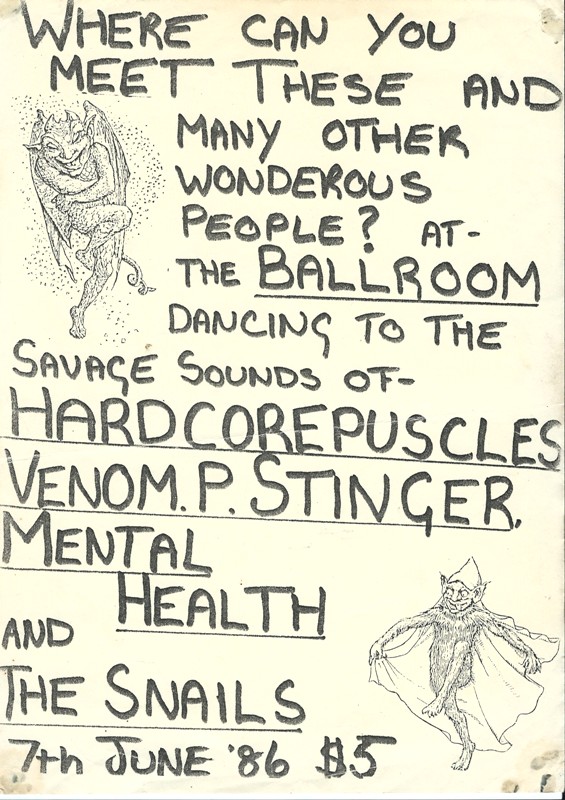 WHERE CAN YOU
MEET THESE AND
MANY OTHER
WONDEROUS
PEOPLE? AT-
THE BALLROOM
DANCING TO THE
SAVAGE SOUNDS OF-
HARDCOREPUSCLES
VENOM. P. STINGER,
MENTAL
HEALTH
AND
THE SNAILS
7th JUNE '86 $5